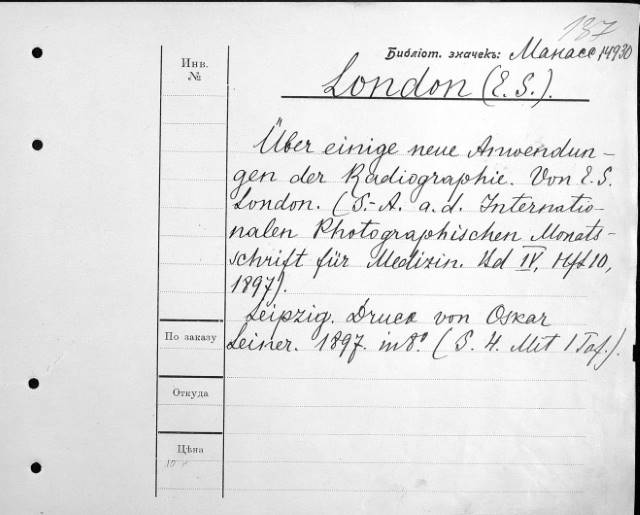 187
Библіот. значекъ: Манасс 14930
Инв.
№
London (E. S.).
Über einige neue Anwendun-
gen der Radiographie. Von E. S.
London. (S.-A. a. d. Internatio-
nalen Photographischen Monats-
schrift für Medizin. Bd IV, Hft 10,
1897).
Leipzig. Druck von Oskar
Leiner. 1897. in 8º. (S. 4. Mit 1 Taf.).
По заказу
Откуда
Цѣна
10